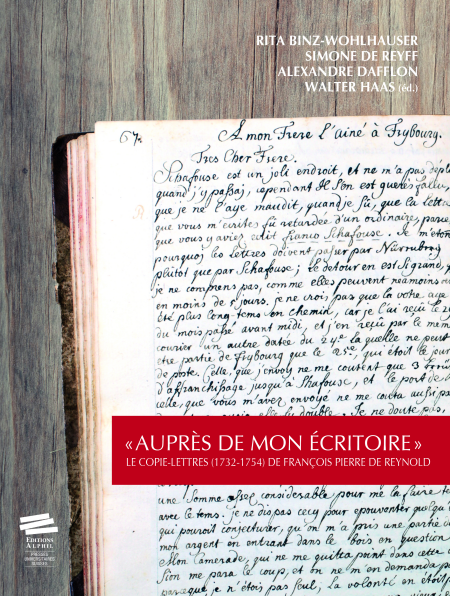 RITA BINZ-WOHLHAUSER
SIMONE DE REYFF
ALEXANDRE DAFFLON
WALTER HAAS (éd.)
67.
A mon Frere l'ainé à Frybourg.
Tres Cher Frere.
Schafouse est un joli endroit, et ne m'a pas
quand j'y passaj, cependant Il s'en est gueres fallu,
que je ne l'aye maudit, quand je sû, que la lettre
que vous m'ecrites fû retardée d'un ordinaire,
que vous y aviez ecrit franco Schafouse. Je
pourquoj les lettres doivent passer par Nürenberg
plûtot que par Schafouse; le detour en est
je ne comprens pas, comme elles peuvent néamoins
en moins de 5 jours. je ne crois pas que la votre aye
été plus long tems en chemin, car je l'ai reçû le
du mois passé avant midi, et j'en reçû par le
courier un autre datée du 24e la quelle ne peut
etre partie de Frybourg que le 25e, qui étoit le jour
de poste. Celle, que j'envoy ne me coutent que 3
d'affranchissage jusqu'à Shafouse, et le port de
que vous m'avez envoyé ne me couta aussi
la double. Je ne doute pas,
« AUPRÈS DE MON ÉCRITOIRE »
LE COPIE-LETTRES (1732-1754) DE FRANÇOIS PIERRE DE REYNOLD
une somme assez considerable pour me la faire
avec le tems. je ne dis pas cecy pour epouvanter
qui pouroit conjecturer, qu'on m'a pris une partie de
mon argent en entrant dans le bois en question
Mon camerade, qui ne me quitta point dans cette
S'en me para le coup, et on ne m'en demanda
parceque je n'étois pas seul, la volonté en étoit
EDITIONS
ALPHIL
PRESSES
UNIVERSITAIRES
SUISSES